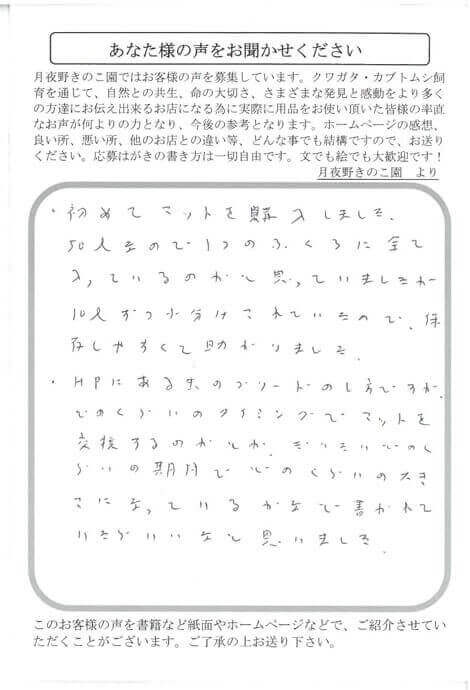 あなた様の声をお聞かせください
月夜野きのこ園ではお客様の声を募集しています。クワガタ・カブトムシ飼
育を通じて、自然との共生、命の大切さ、さまざまな発見と感動をより多く
の方達にお伝え出来るお店になる為に実際に用品をお使い頂いた皆様の率直
なお声が何よりの力となり、今後の参考となります。ホームページの感想、
良い所、悪い所、他のお店との違い等、どんな事でも結構ですので、お送り
ください。応募はがきの書き方は一切自由です。文でも絵でも大歓迎です！
月夜野きのこ園　より
・初めてマットを購入しました。
50ℓなので1つのふくろに全て
入っているのかと思っていましたが
10ℓずつ小分けされていたので、保
存しやすくて助かりました。
・HPにある のブリードのし方ですが、
どのくらいのタイミングでマットを
交換するのかとか、だいたいどのく
らいの期間でどのくらいの大き
さになっているかなど書かれて
いたらいいなと思いました。
このお客様の声を書籍など紙面やホームページなどで、ご紹介させてい
ただくことがございます。ご了承の上お送り下さい。